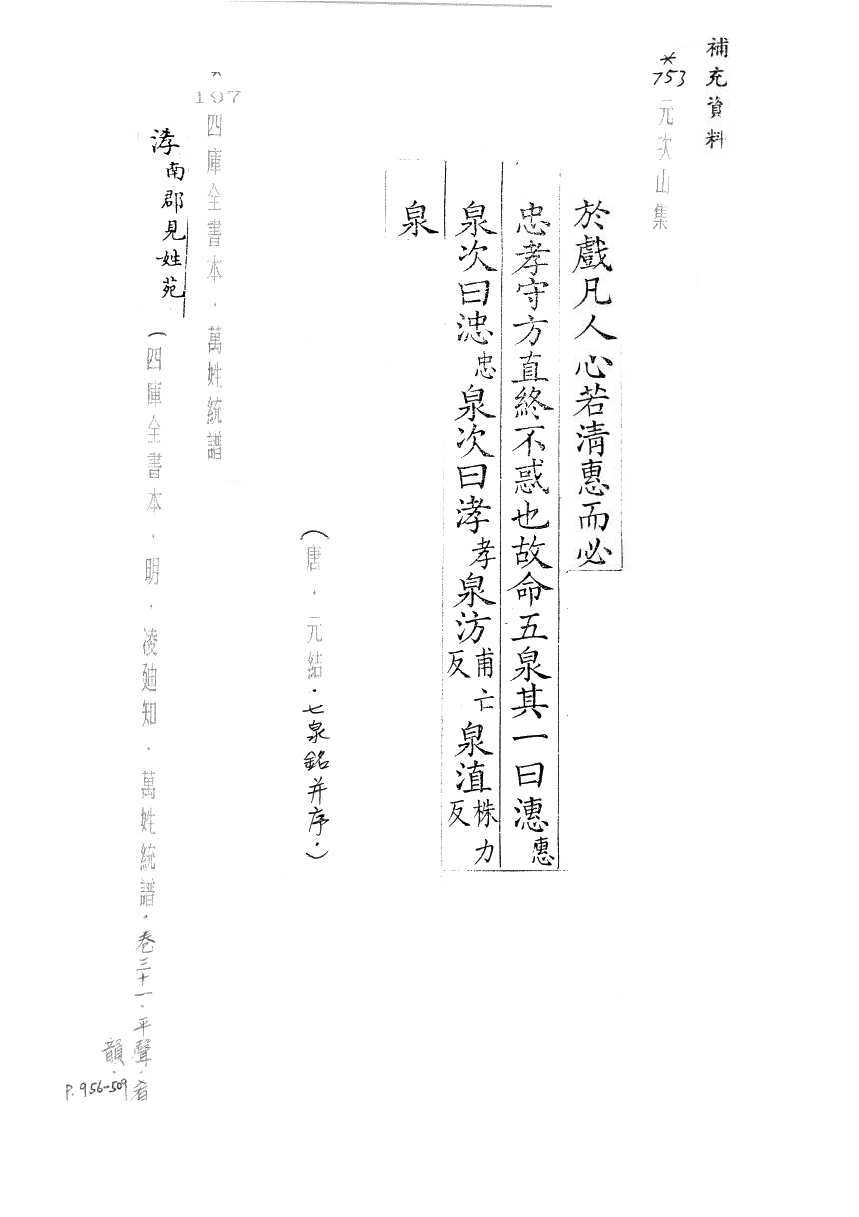 補充資料
*753 元次山集
於戲凡人心若清惠而必
忠孝守方直終不惑也故命五泉其一曰潓惠
泉次曰㴳忠泉次曰涍孝泉汸甫亡反泉淔株力反
泉
(唐．元結．七泉銘并序．)
*197 四庫全書本．萬姓統譜
涍南郡見姓苑
(四庫全書本．明．凌迪知．萬姓統譜．卷三十一．平聲．肴韻．
P.956-509